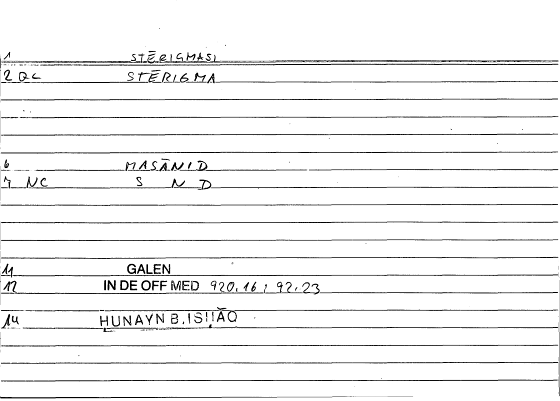 1 STĒRIGMASI
2 QC STĒRIGMA
6 MASĀNID
7 NC S N D
11 GALEN
12 IN DE OFF MED 920,16 ; 92,23
14 HUNAYN B. ISḤĀQ